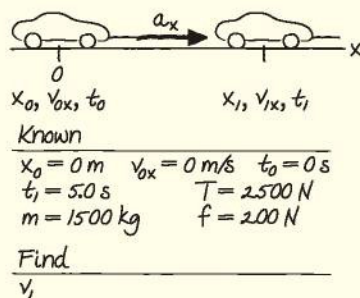 aₓ
x
0
x₀, v₀ₓ, t₀ x₁, v₁ₓ, t₁
Known
x₀ = 0 m v₀ₓ = 0 m/s t₀ = 0 s
t₁ = 5.0 s T = 2500 N
m = 1500 kg f = 200 N
Find
v₁